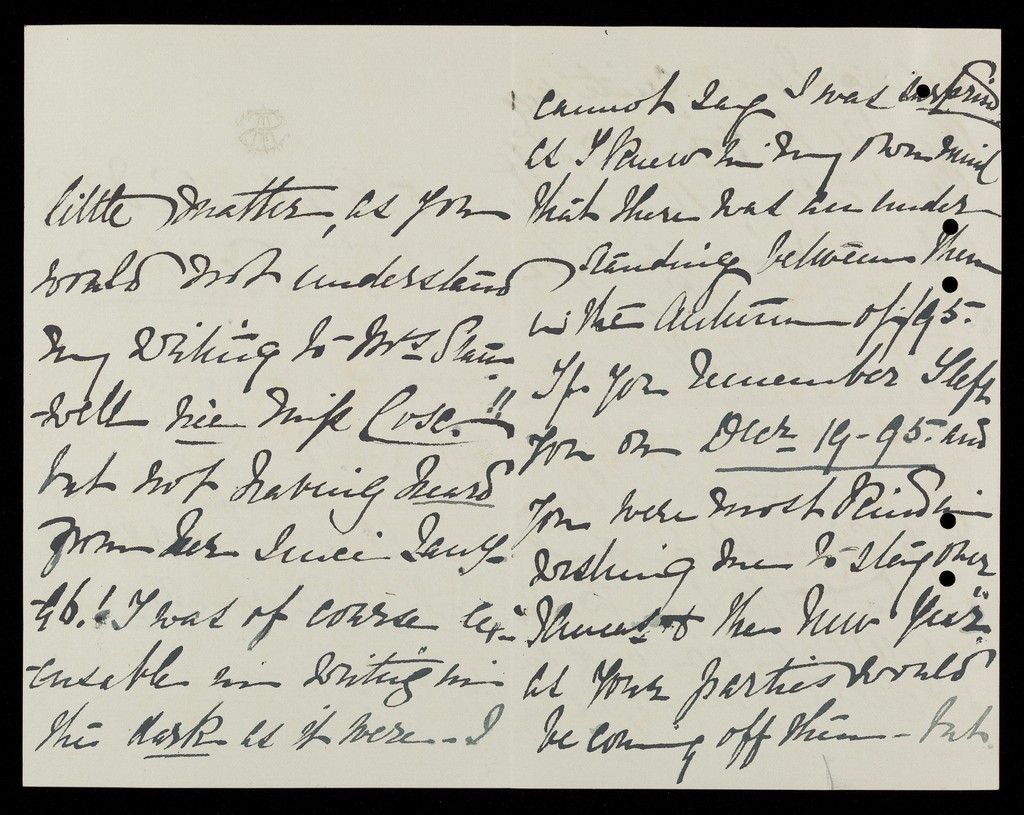 little matter, as you
would not understand
my writing to Mrs Stan-
-well née Miss Cose.!!
but not having heard
from her since Jany-
-96.! I was of course ex-
-cusable in writing in
the dark as it were - I
cannot say I was surprised
as I knew in my own mind
that there was an under-
-standing between them
in the Autumn of /95-
If you remember I left
you on Decr 19-95. and
you were most kind in
wishing me to stay over
Xmas & the New Year
as your parties would
be coming off then - but